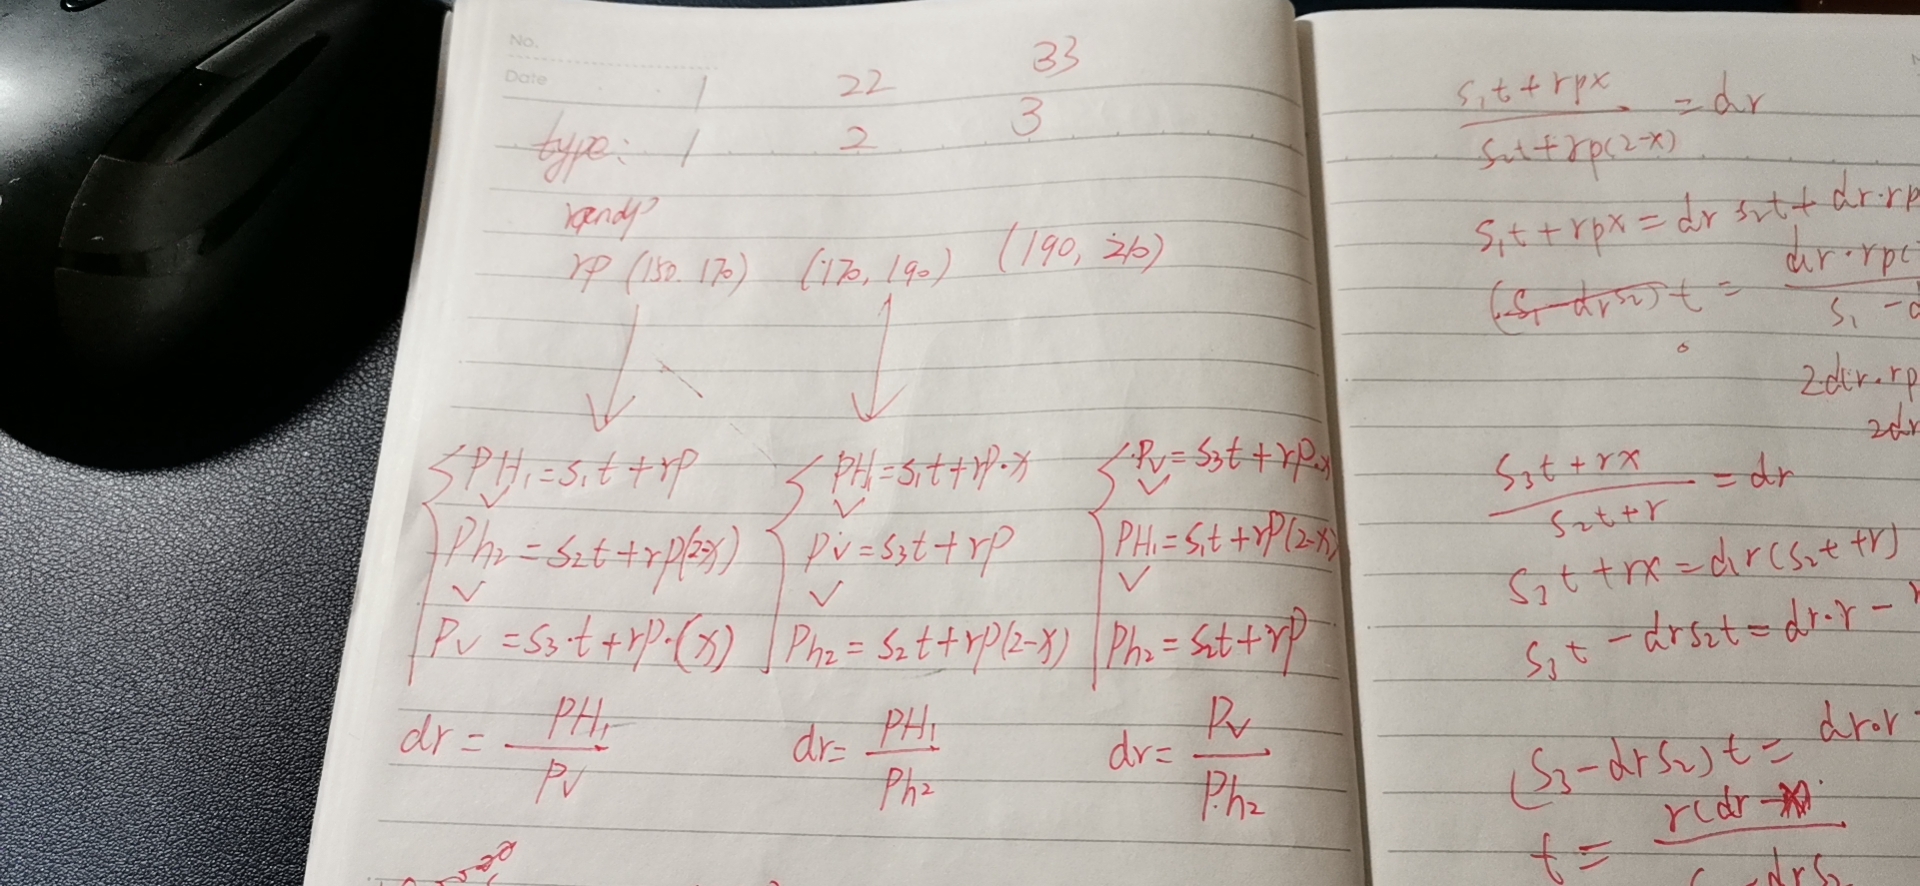 No.
Date
1 22 33
type: 1 2 3
rp (150. 170) (170, 190) (190, 210)
PH₁ = s₁t + rp
Ph₂ = s₂t + rp(2-x)
Pv = s₃·t + rp·(x)
dr = PH₁ / Pv
PH₁ = s₁t + rp·x
Pv = s₃t + rp
Ph₂ = s₂t + rp(2-x)
dr = PH₁ / Ph₂
Pv = s₃t + rp·x
PH₁ = s₁t + rp(2-x)
Ph₂ = s₂t + rp
dr = Pv / Ph₂
(s₁t + rpx) / (s₂t + rp(2-x)) = dr
s₁t + rpx = dr s₂t + dr·rp
(s₁ - dr s₂) t = dr·rp( / s₁ -
2dr·rp
2dr
(s₃t + rx) / (s₂t + r) = dr
s₃t + rx = dr(s₂t + r)
s₃t - dr s₂t = dr·r -
(s₃ - dr s₂) t = dr·r
t = r(dr - / - dr s₂